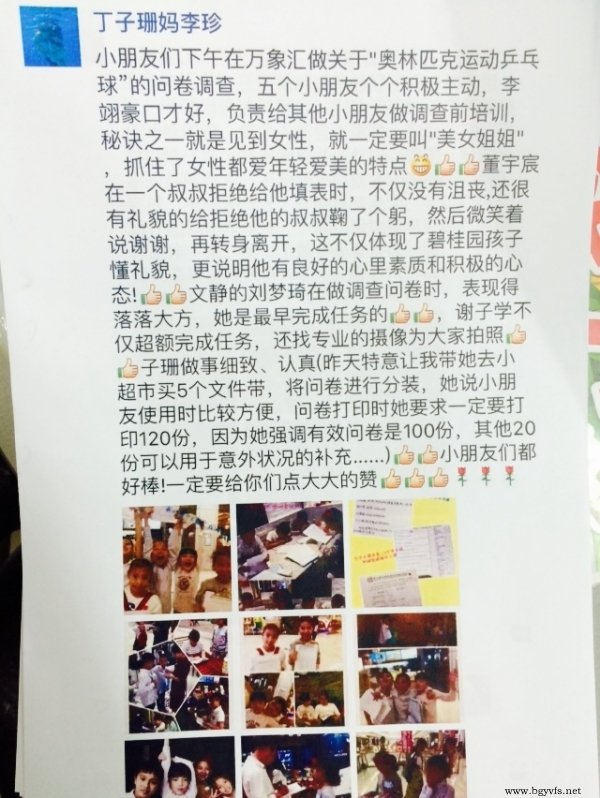 丁子珊妈李珍
小朋友们下午在万象汇做关于"奥林匹克运动乒乓
球”的问卷调查，五个小朋友个个积极主动，李
翊豪口才好，负责给其他小朋友做调查前培训，
秘诀之一就是见到女性，就一定要叫"美女姐姐"
，抓住了女性都爱年轻爱美的特点😁👍👍董宇宸
在一个叔叔拒绝给他填表时，不仅没有沮丧,还很
有礼貌的给拒绝他的叔叔鞠了个躬，然后微笑着
说谢谢，再转身离开，这不仅体现了碧桂园孩子
懂礼貌，更说明他有良好的心里素质和积极的心
态!👍👍文静的刘梦琦在做调查问卷时，表现得
落落大方，她是最早完成任务的👍👍，谢子学不
仅超额完成任务，还找专业的摄像为大家拍照👍
👍子珊做事细致、认真(昨天特意让我带她去小
超市买5个文件带，将问卷进行分装，她说小朋
友使用时比较方便，问卷打印时她要求一定要打
印120份，因为她强调有效问卷是100份，其他20
份可以用于意外状况的补充......)👍👍小朋友们都
好棒!一定要给你们点大大的赞👍👍👍🌹🌹🌹
www.bgyvfs.net